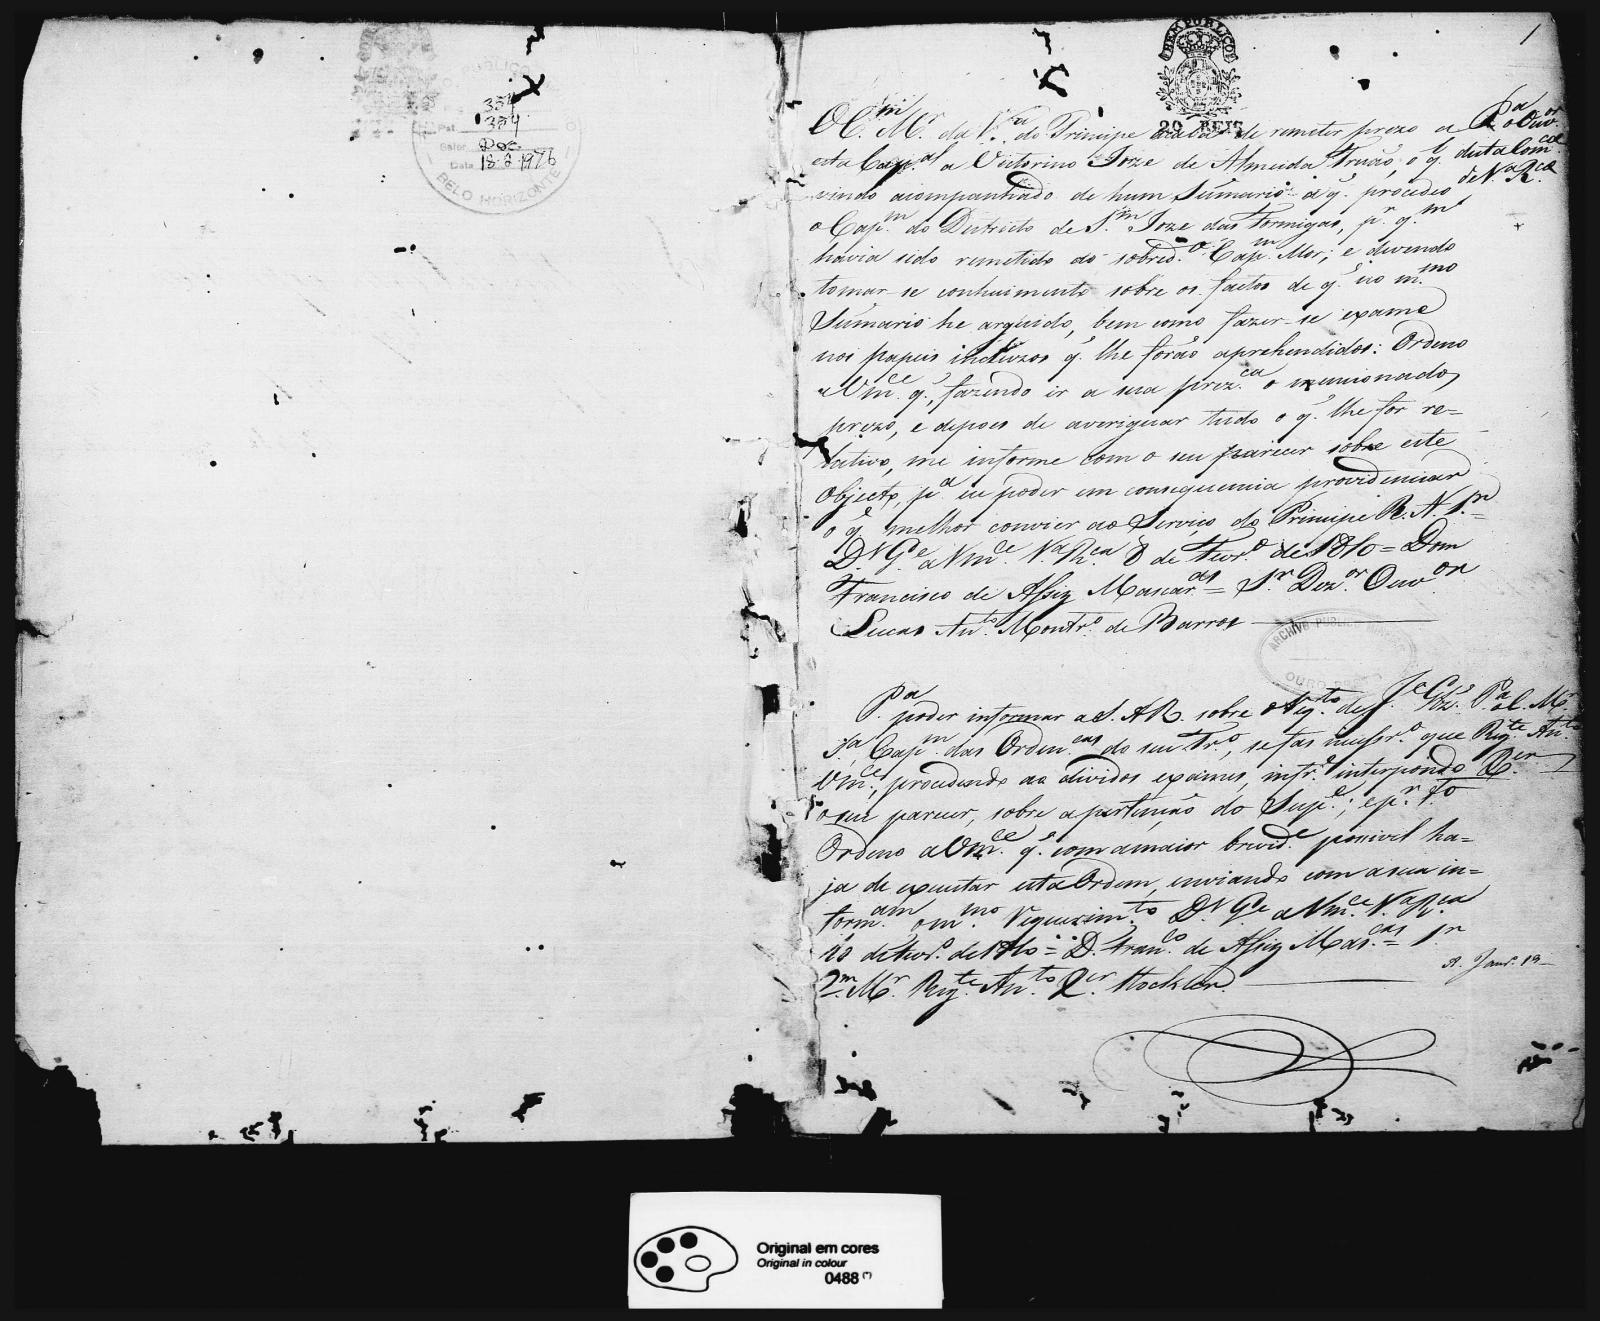 354
Pat. 354
Setor Doc.
Data 18-8-1976
BELO HORIZONTE
1
BEM PUBLICO
20 REIS
O C.m M.r da V.a do Principe acaba de remeter prezo a
esta Cap.al a Victorino Joze de Almeida Truão, o q.l
vindo acompanhado de hum Sumario a q. procedeo
o Cap.m do Districto de S.m Joze das Formigas, p.r q.m
havia sido remetido ao sobred.o Cap.m Mor; e devendo
tomar-se conhecimento sobre os factos de q. no m.mo
Sumario he arguido, bem como fazer-se exame
nos papeis incluzos q. lhe forão aprehendidos: Ordeno
a Vm.ce q., fazendo ir a sua prez.ca o mencionado
prezo, e depois de averiguar tudo o q. lhe for re=
lativo, me informe com o seu parecer sobre este
Objecto, p.a eu poder em consequencia providenciar
o q. melhor convier ao Serviço do Principe R. N. S.r
D.s G.e a Vm.ce V.a R.ca 8 de Fevr.o de 1810 = Dom
Francisco de Assiz Mascar.as = S.r Dez.or Ouv.or
Lucas An.to Montr.o de Barros
P.a o Ouv.or
desta Com.ca
de V.a R.ca
ARCHIVO PUBLICO
OURO PRETO
P.a poder informar a S. A R. sobre o Req.to de
Cap.m das Orden.cas do seu Tr.o, se faz necessr.o que
Vm.ce, procedendo aos dividos exames, infr.e interpondo
o seu parecer, sobre a pertenção do Sup.e; e p.r t.o
Ordeno a Vm.ce q. com a maior brevid.e possivel ha=
ja de executar esta Ordem, enviando com a sua in=
form.am o m.mo Requerim.to D.s G.e a Vm.ce V.a R.ca
de Fevr.o de 1810 = D. Fran.co de Assiz Mas.cas = S.r
C.m M.r Reg.te An.to R.er Stockler
P.a o C. M.r
Reg.te An.to
R.er
Original em cores
Original in colour
0488 (*)